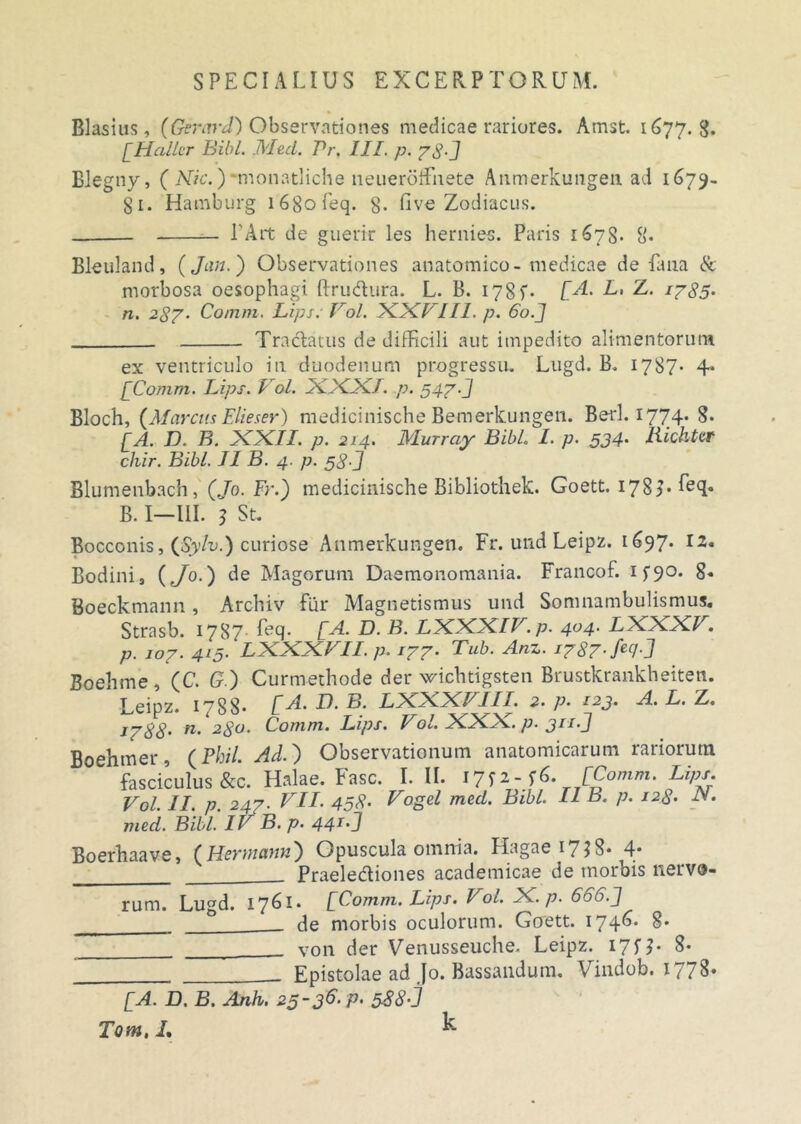 SPECIALIUS EXCERPTORUM.
Blasius, (Gerard) Observationes medicae rariores. Amst. 1677. 8.
[Haller Bibl. Med. Pr. III. p. 78.]
Blegny, (Nic.) monatliche neueröffnete Anmerkungen ad 1679-
81. Hamburg 1680 seq. 8. sive Zodiacus.
—— —— l'Art de guerir les hernies. Paris 1678. 8.
Bleuland, (Jan.) Observationes anatomico-medicae de sana &
morbosa oesophagi structura. L. B. 1785. [A. L. Z. 1785.
n. 287. Comm. Lips. Vol. XXVIII. p. 60.]
—— —— Tractatus de difficili aut impedito alimentorum
ex ventriculo in duodenum progressu. Lugd. B. 1787. 4.
[Comm. Lips. Vol. XXXI. p. 547.]
Bloch, (Marcus Elieser) medicinische Bemerkungen. Berl. 1774. 8.
[A. D. B. XXII. p. 214. Murray Bibl. I. p. 534. Richter
chir. Bibl. II B. 4. p. 58.]
Blumenbach, (Jo. Fr.) medicinische Bibliothek. Goett. 1783. seq.
B. I—III. 3 St.
Bocconis, (Sylv.) curiose Anmerkungen. Fr. und Leipz. 1697. 12.
Bodini, (Jo.) de Magorum Daemonomania. Francof. 1590. 8.
Boeckmann, Archiv für Magnetismus und Somnambulismus.
Strasb. 1787. seq. [A. D. B. LXXXIV. p. 404. LXXXV.
p. 107. 415. LXXXVII. p. 177. Tub. Anz. 1787. seq.]
Boehme, (C. G.) Curmethode der wichtigsten Brustkrankheiten.
Leipz. 1788. [A. D. B. LXXXVIII. 2. p. 123. A. L. Z.
1788. n. 280. Comm. Lips. Vol. XXX. p. 311.]
Boehmer, (Phil. Ad.) Observationum anatomicarum rariorum
fasciculus &c. Halae. Fasc. I. II. 1752-56. [Comm. Lips.
Vol. II. p. 247. VII. 458. Vogel med. Bibl. II B. p. 128. N.
med. Bibl. IV B. p. 441.]
Boerhaave, (Hermann) Opuscula omnia. Hagae 1738. 4.
—— —— Praelectiones academicae de morbis nervo-
rum. Lugd. 1761. [Comm. Lips. Vol. X. p. 666.]
—— —— de morbis oculorum. Goett. 1746. 8.
—— —— von der Venusseuche. Leipz. 1753. 8.
—— —— Epistolae ad Jo. Bassandum. Vindob. 1778.
[A. D. B. Anh. 25-36. p. 588.]
Tom. I. k